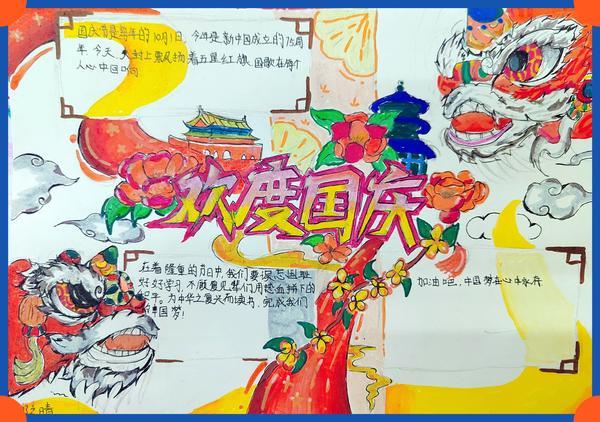 国庆节是每年的10月1日,今年是新中国成立的75周
年,今天,大街上飘扬着五星红旗,国歌在每个
人心中回响
欢度国庆
在着隆重的节日中,我们要
好好学习,不
们用鲜血拼下的
和平。为中华之复兴而读书,完成我们
中国梦!
加油吧,中国梦在心中永存
晴